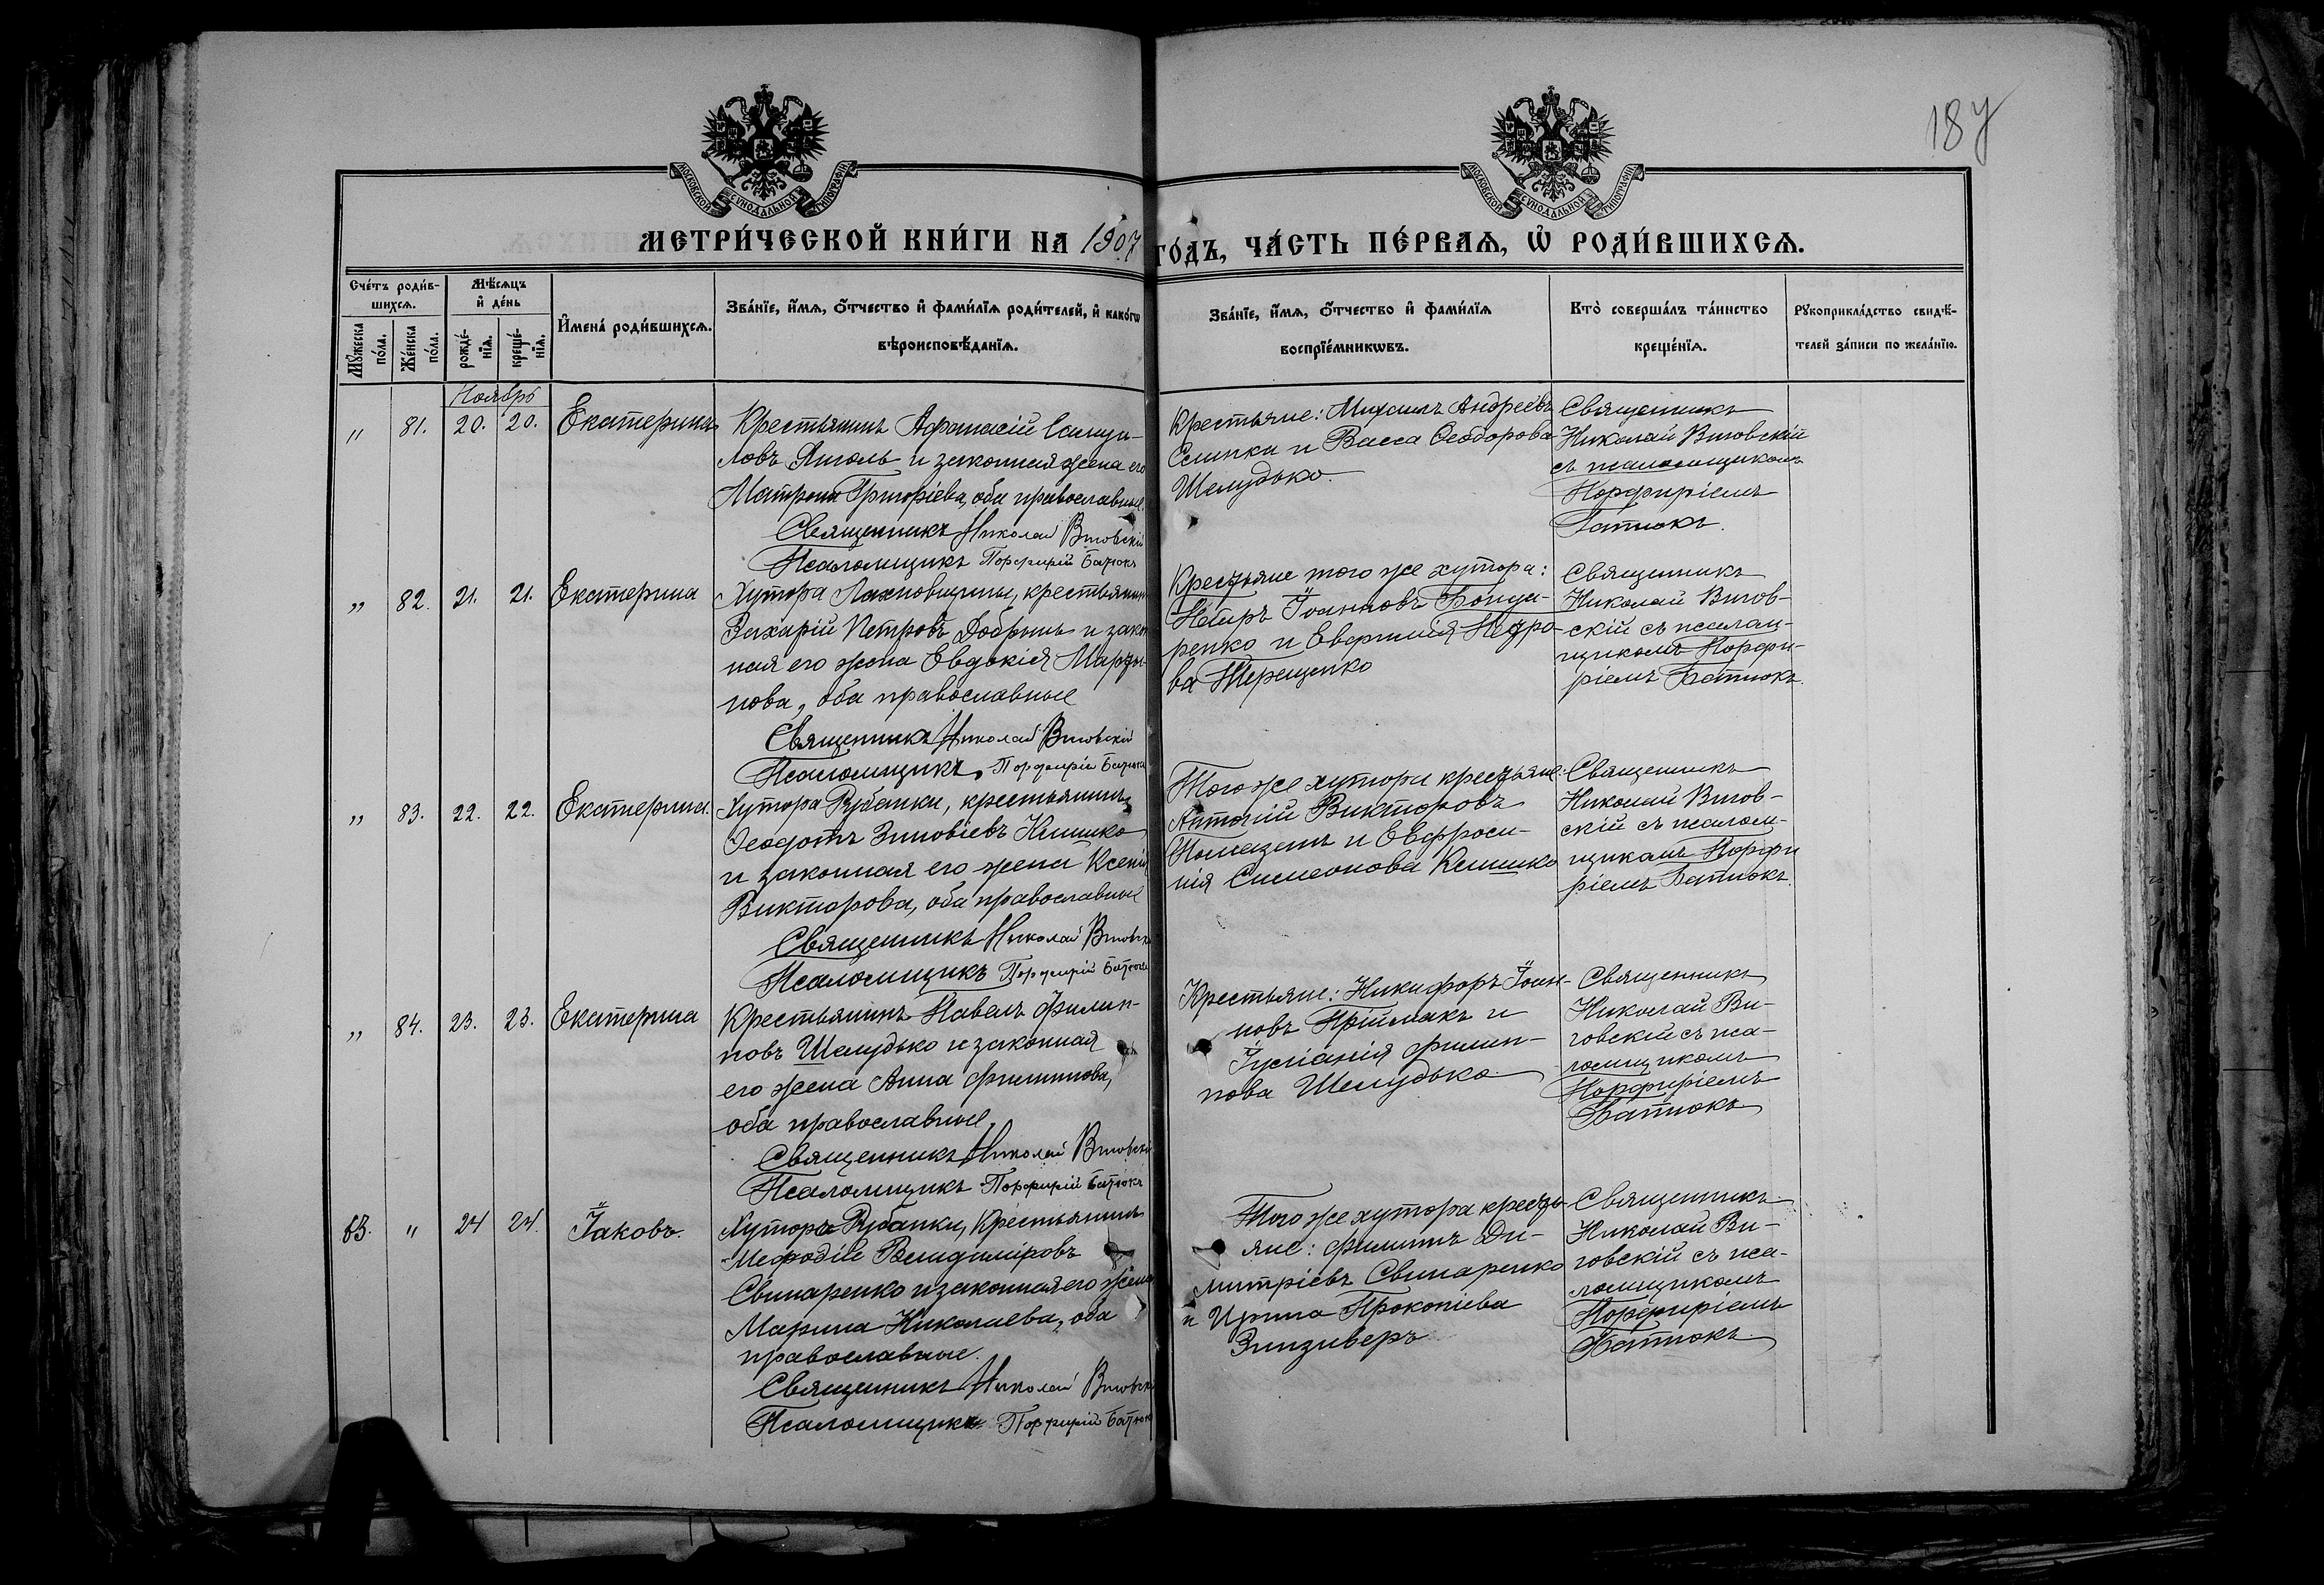 187
МОСКОВСКОЙ СѴНОДАЛЬНОЙ ТИПОГРАФІИ
МОСКОВСКОЙ СѴНОДАЛЬНОЙ ТИПОГРАФІИ
МЕТРИ́ЧЕСКОЙ КНИ́ГИ НА 1907 ГО́ДЪ, ЧА́СТЬ ПЕ́РВАѦ, Ѡ҆ РОДИ́ВШИХСѦ.
Сче́тъ роди́в-
шихсѧ.
Мꙋ́жеска
по́ла.
Же́нска
по́ла.
Мѣ́сѧцъ
и҆ де́нь
рожде́-
нїѧ.
креще́-
нїѧ.
И҆мена̀ роди́вшихсѧ.
Зва́нїе, и҆́мѧ, ѻ҆́тчество и҆ фами́лїѧ роди́телей, и҆ како́гѡ
вѣроисповѣ́данїѧ.
Зва́нїе, и҆́мѧ, ѻ҆́тчество и҆ фами́лїѧ
воспрїе́мникѡвъ.
Кто̀ соверша́лъ та́инство
креще́нїѧ.
Рꙋкоприкла́дство свидѣ́-
телей за́писи по жела́нїю.
Ноябрь
" 81. 20. 20. Екатерина
Крестьянинъ Афанасій
ловъ и законная жена его
Матрона Григоріева, оба православные.
Священникъ Николай Виговскій
Псаломщикъ Порфирій Батюкъ
Крестьяне: Михаилъ Андреевъ
Селипка и Васса Ѳеодорова
Шелудько.
Священникъ
Николай Виговскій
съ псаломщикомъ
Порфиріемъ
Батюкъ.
" 82. 21. 21. Екатерина
Хутора Лахновщины, крестьянинъ
Захарій Петровъ Добрынь и закон
ная его жена Евдокія Марты-
нова, оба православные
Священникъ Николай Виговскій
Псаломщикъ Порфирій Батюкъ
Крестьяне того же хутора:
Петръ Іоанновъ Бонда-
ренко и Евфимія Петро-
ва Терещенко
Священникъ
Николай Вигов-
скій съ псалом-
щикомъ Порфи-
ріемъ Батюкъ.
" 83. 22. 22. Екатерина.
Хутора Рубанки, крестьянинъ
Ѳеодотъ Зиновіевъ Кишко
и законная его жена Ксенія
Викторова, оба православные
Священникъ Николай Виговскій
Псаломщикъ Порфирій Батюкъ
Того же хутора крестьяне:
Антоній Викторовъ
Помазанъ и Евфроси-
нія Симеонова Кишко
Священникъ
Николай Вигов-
скій съ псалом-
щикомъ Порфи
ріемъ Батюкъ.
" 84. 23. 23. Екатерина
Крестьянинъ Павелъ Филип-
повъ Шелудько и законная
его жена Анна Филиппова,
оба православные.
Священникъ Николай Виговскій
Псаломщикъ Порфирій Батюкъ
Крестьяне: Никифоръ Іоан-
новъ Пріймакъ и
Іуліанія Филип-
пова Шелудько
Священникъ
Николай Ви-
говскій съ пса-
ломщикомъ
Порфиріемъ
Батюкъ
63. " 24 24. Іаковъ.
Хутора Рубанки, Крестьянинъ
Мефодій Владиміровъ
Свинаренко и законная его жена
Марина Николаева, оба
православные.
Священникъ Николай Виговскій
Псаломщикъ Порфирій Батюкъ
Того же хутора кресть-
яне: Филиппъ Ди-
митріевъ Свинаренко
и Ирина Прокопіева
Зинзиверъ
Священникъ
Николай Ви-
говскій съ пса-
ломщикомъ
Порфиріемъ
Батюкъ.